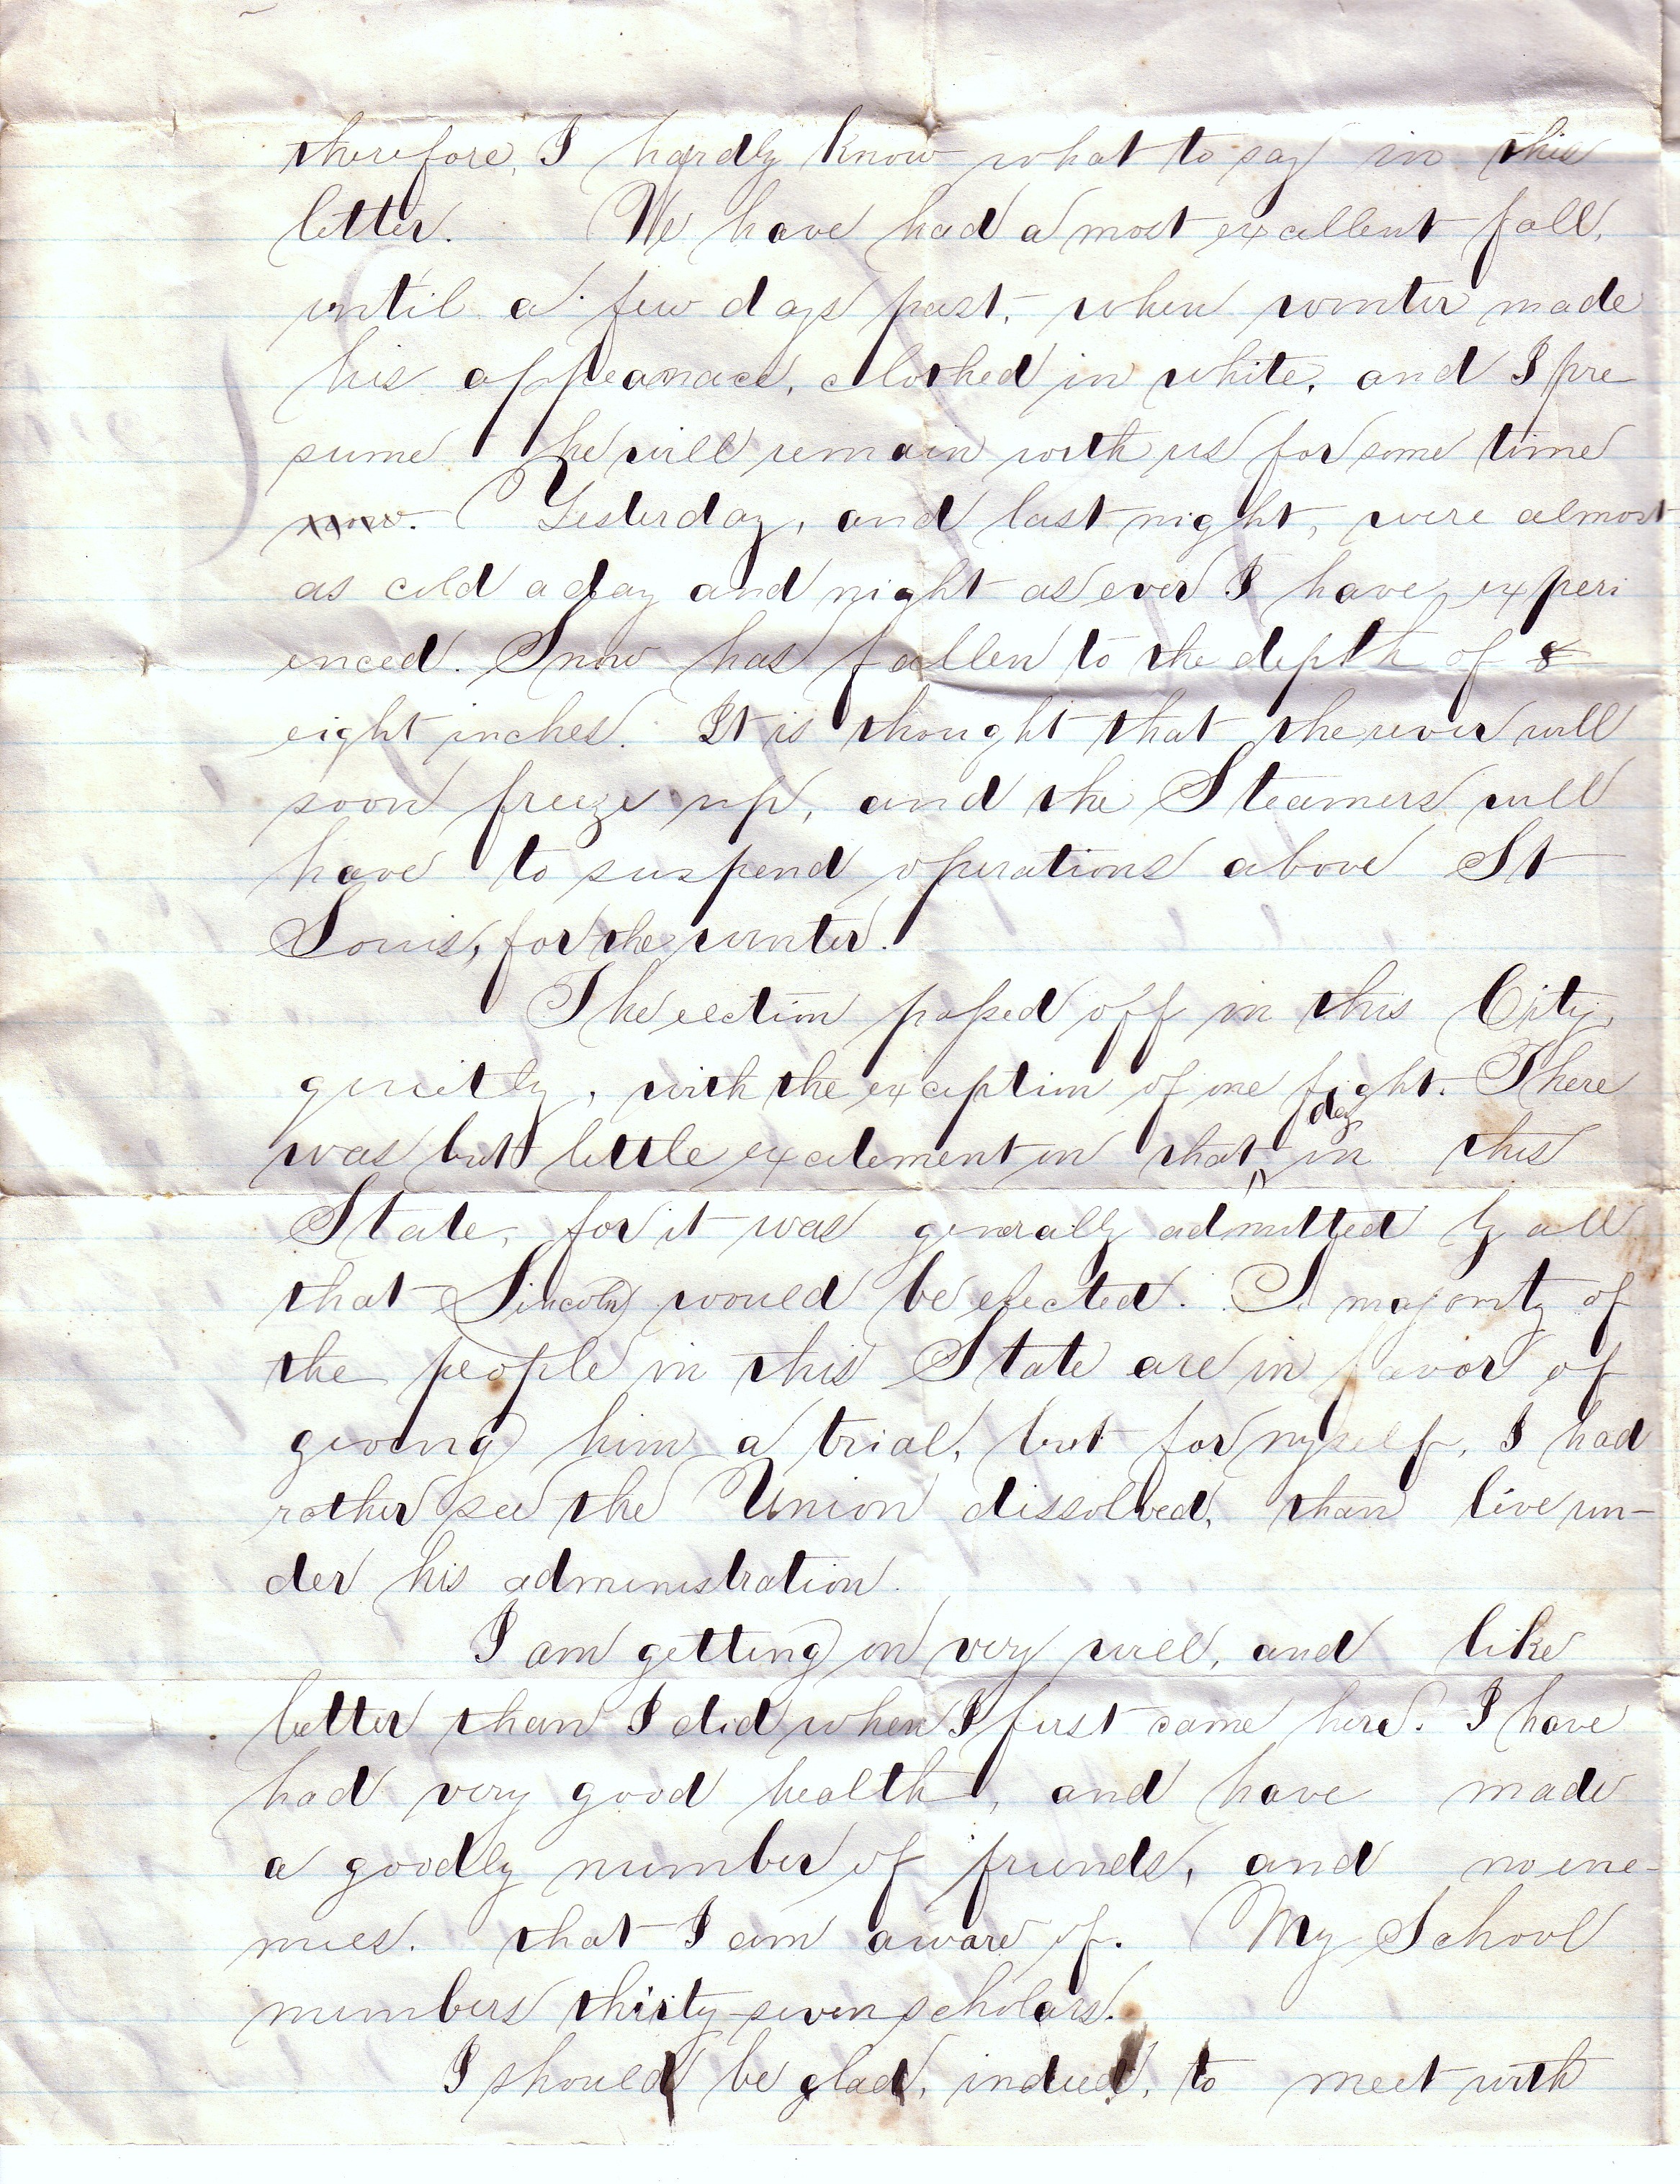 therefore, I hardly know what to say in this
letter. We have had a most excellent fall,
until a few days past, when winter made
his appearnace, clothed in white, and I pre
sume he will remain with us for some time
now. Yesterday, and last night, were almost
as cold a day and night as ever I have experi
enced. Snow has fallen to the depth of 8
eight inches. It is thought that the river will
soon freeze up, and the Steamers will
have to suspend operations above St
Louis, for the winter.
The eection passed off in this City,
quietly, with the exception of one fight. There
day
was but little excitement on that in this
State, for it was generally admitted by all
that Lincoln would be elected. A majority of
the people in this State are in favor of
giving him a trial, but for myself, I had
rather see the Union dissolved, than live un-
der his administration.
I am getting on very well, and like
better than I did when I first came here. I have
had very good health, and have made
a goodly number of friends, and no ene-
mies. that I am aware of. My School
numbers thirty-seven scholars.
I should be glad, indeed, to meet with